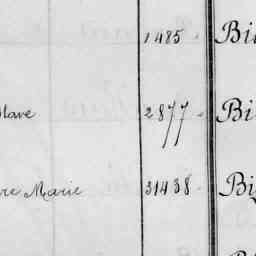 1485. Bi
2877. Bi
re Marie 31438. Bi